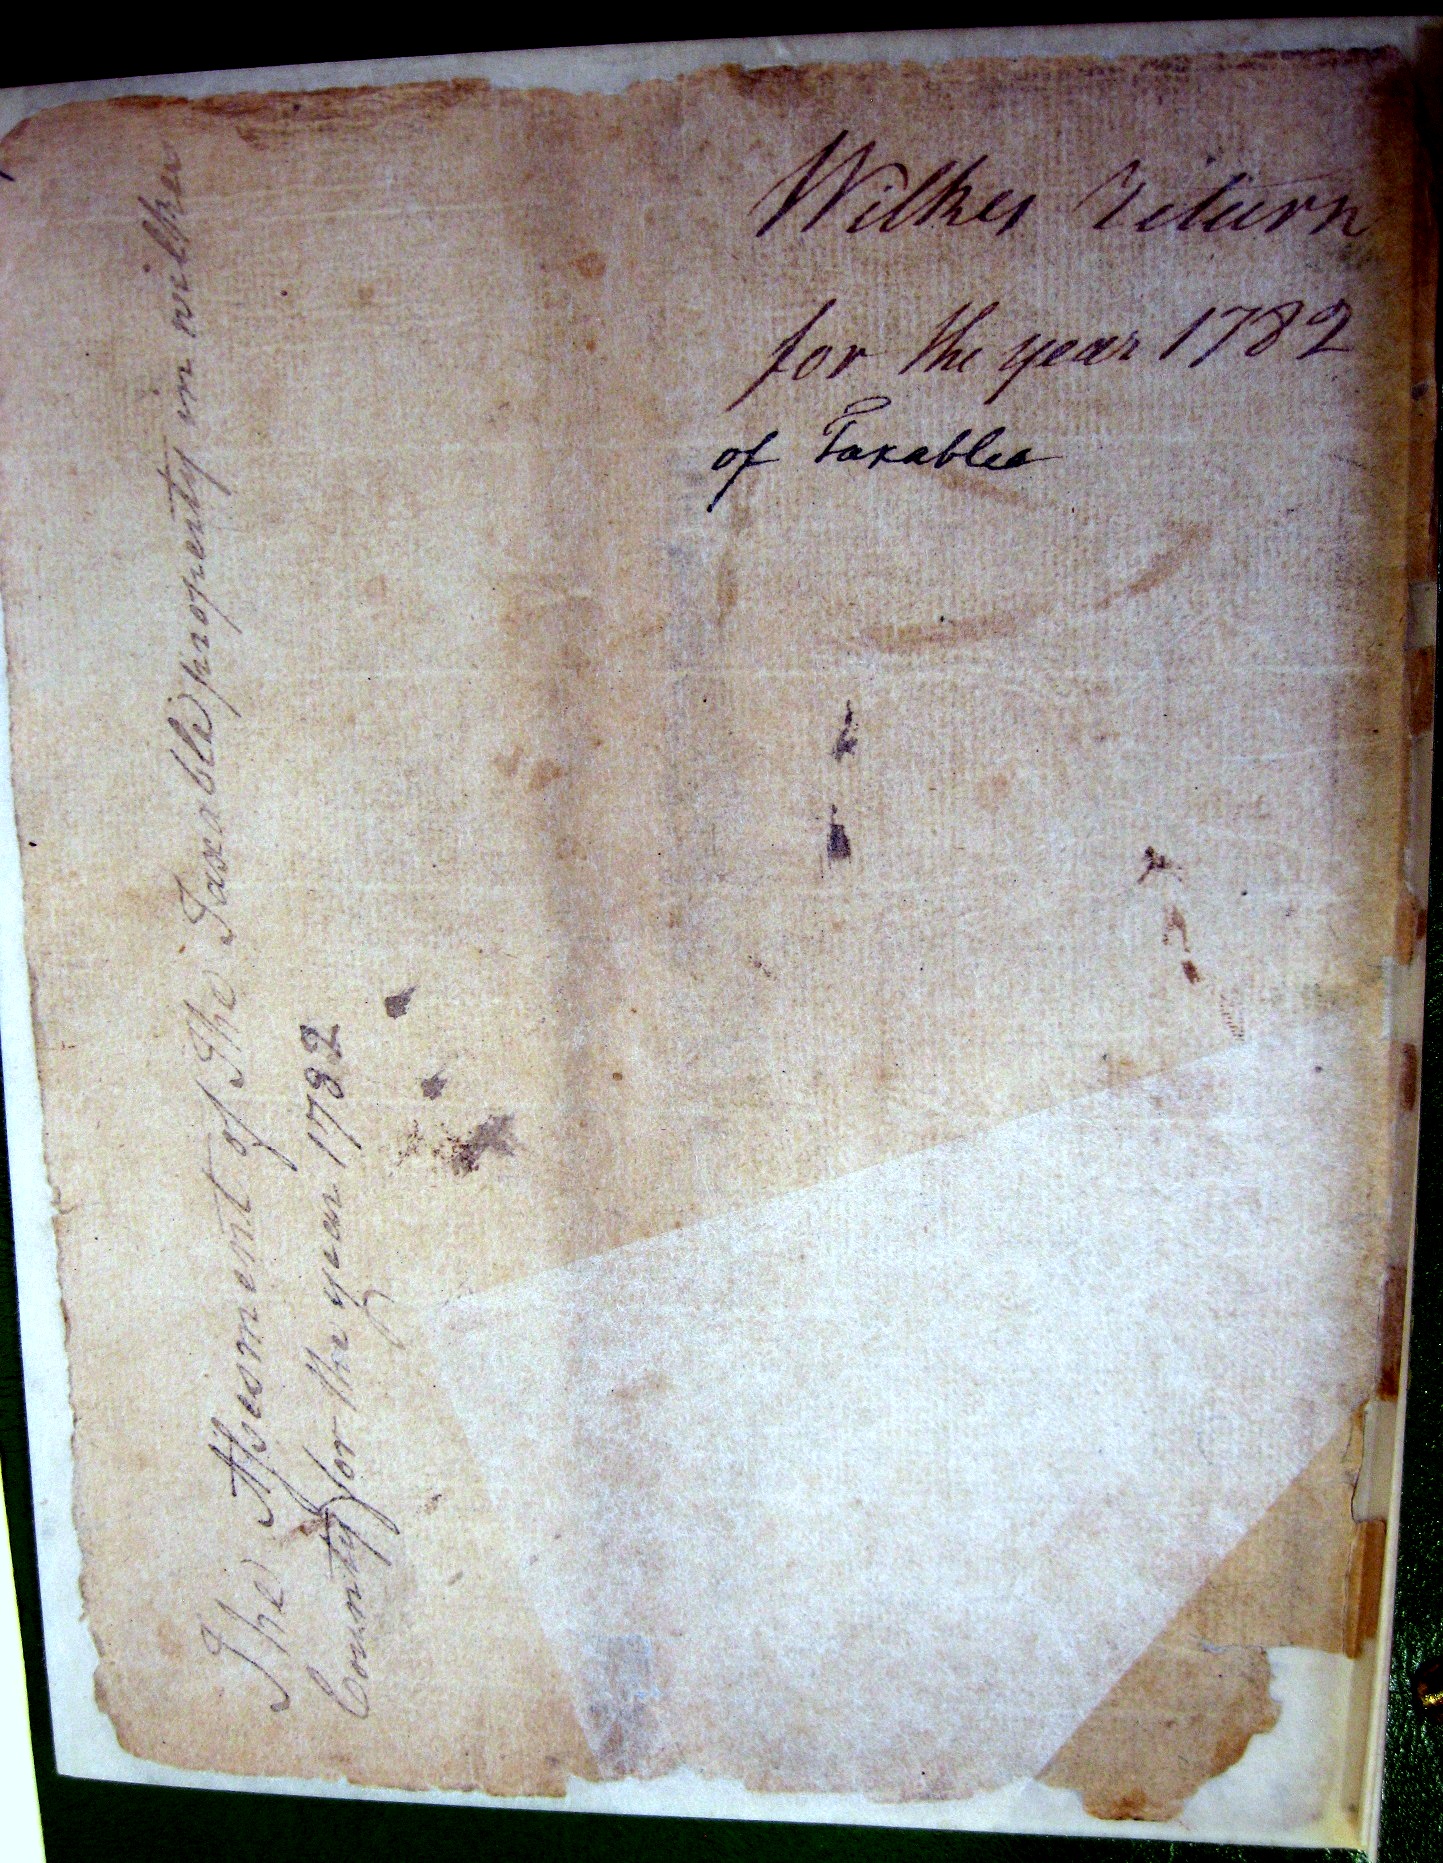 Wilkes return
for the year 1782
of Taxables
The Assesment of the Taxable property in wilkes
County for the year 1782